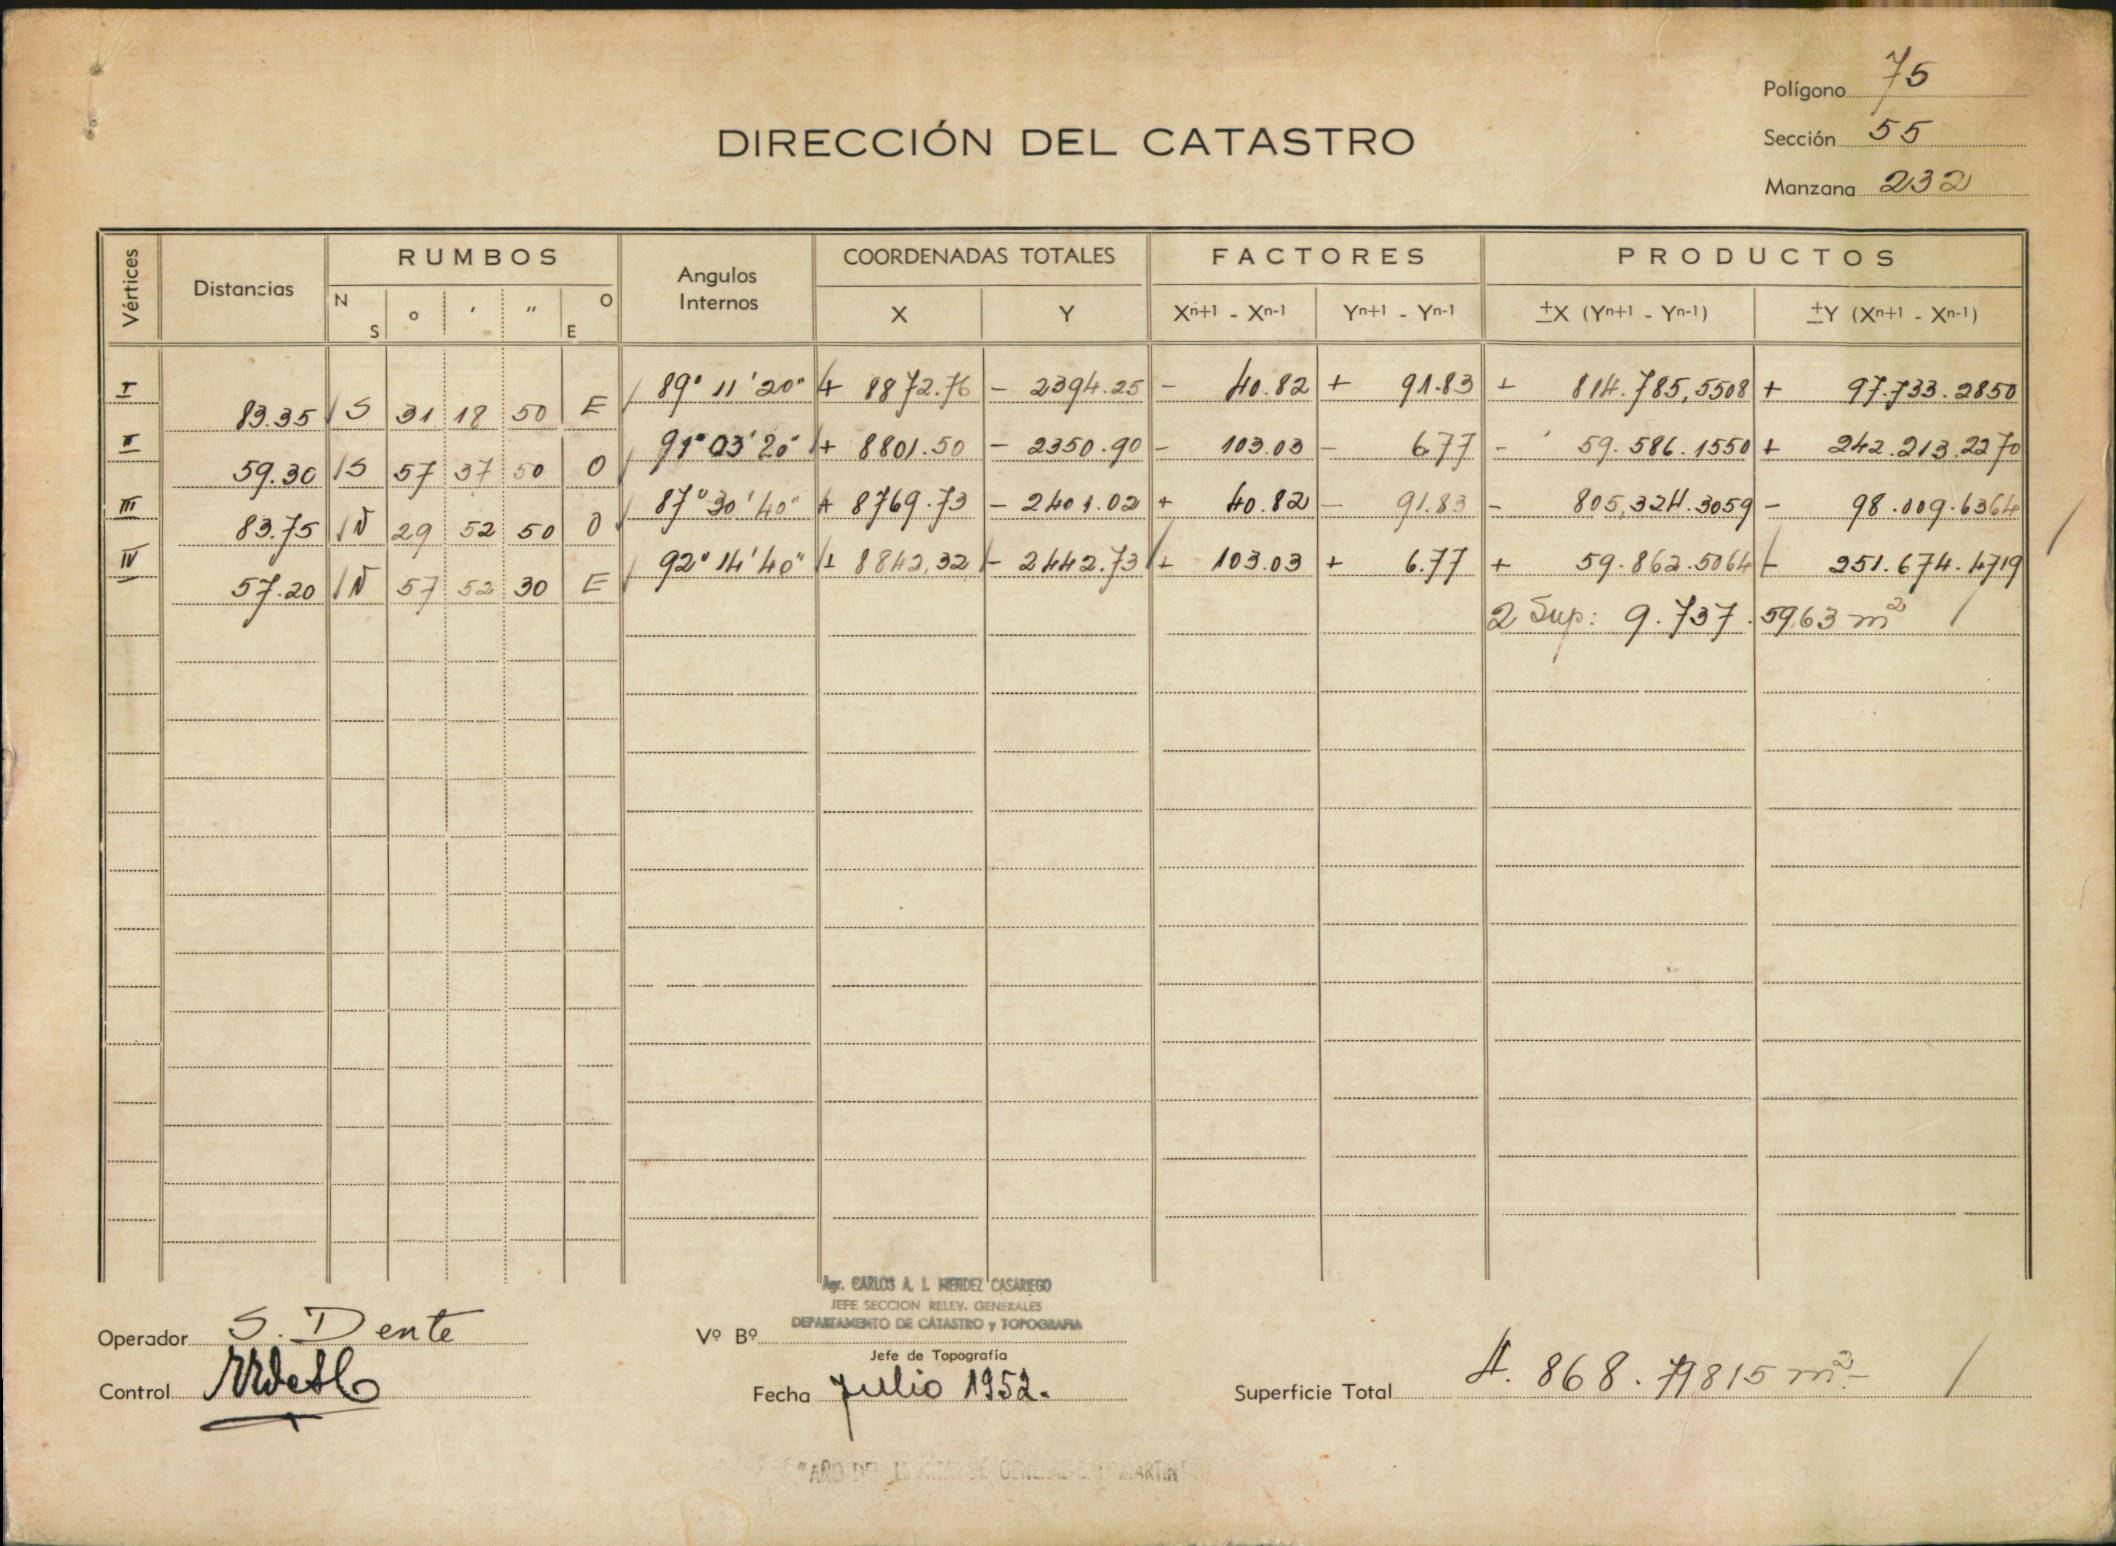 Polígono 75
DIRECCIÓN DEL CATASTRO
Sección 55
Manzana 232
Vértices Distancias RUMBOS Angulos Internos COORDENADAS TOTALES FACTORES PRODUCTOS
N S o ' " O E X Y Xn+1 - Xn-1 Yn+1 - Yn-1 ±X (Yn+1 - Yn-1) ±Y (Xn+1 - Xn-1)
I 89° 11' 20" + 8872.76 - 2394.25 - 40.82 + 91.83 + 814.785,5508 + 97.733.2850
83.35 S 31 18 50 E
II 91° 03' 20" + 8801.50 - 2350.90 - 103.03 - 6.77 - 59.586.1550 + 242.213.2270
59.30 S 57 37 50 O
III 87° 30' 40" + 8769.73 - 2401.02 + 40.82 - 91.83 - 805,324.3059 - 98.009.6364
83.75 N 29 52 50 O
IV 92° 14' 40" + 8842,32 - 2442.73 + 103.03 + 6.77 + 59.862.5064 - 251.674.4719
57.20 N 57 52 30 E
2 Sup: 9.737.5963 m²
Agr. CARLOS A. I. MENDEZ CASARIEGO
JEFE SECCION RELEV. GENERALES
DEPARTAMENTO DE CATASTRO y TOPOGRAFIA
Operador S. Dente
Vº Bº
Jefe de Topografía
Control
Fecha Julio 1952.
Superficie Total 4.868.79815 m²
"AÑO DEL GENERAL SAN MARTIN"